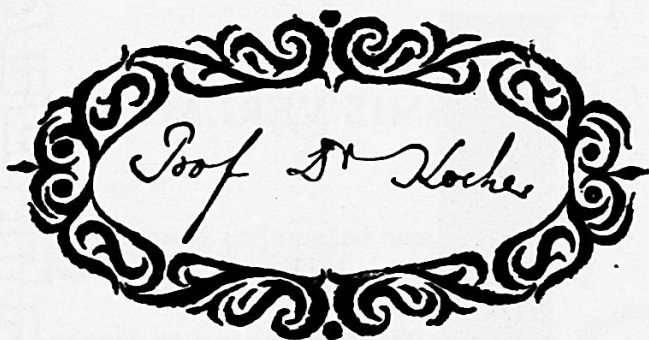 Prof Dr Kocher